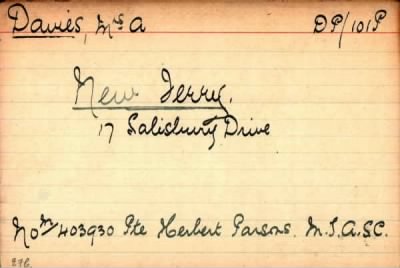 Davies, Mrs A DP/101P
New Ferry.
17 Salisbury Drive
No M/403930 Pte Herbert Parsons. M.T.A.S.C.
276